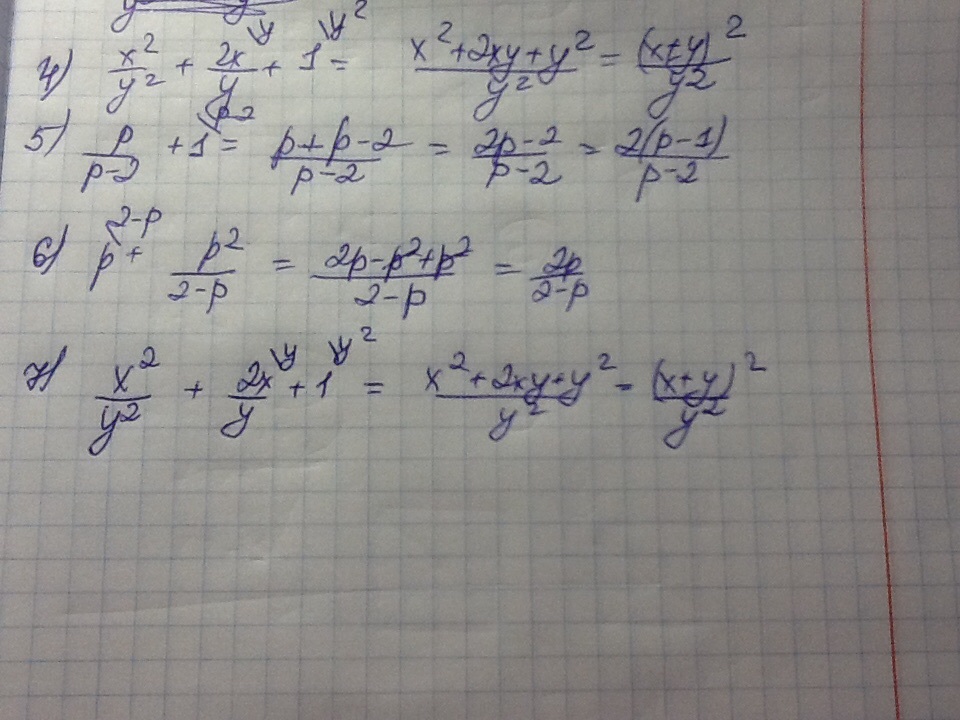 4) x²/y² + 2x/y \y + 1 \y² = (x²+2xy+y²)/y² = (x+y)²/y²
5) p/(p-2) + 1 \p-2 = (p+p-2)/(p-2) = (2p-2)/(p-2) = 2(p-1)/(p-2)
6) p \2-p + p²/(2-p) = (2p-p²+p²)/(2-p) = 2p/(2-p)
7) x²/y² + 2x/y \y + 1 \y² = (x²+2xy+y²)/y² = (x+y)²/y²